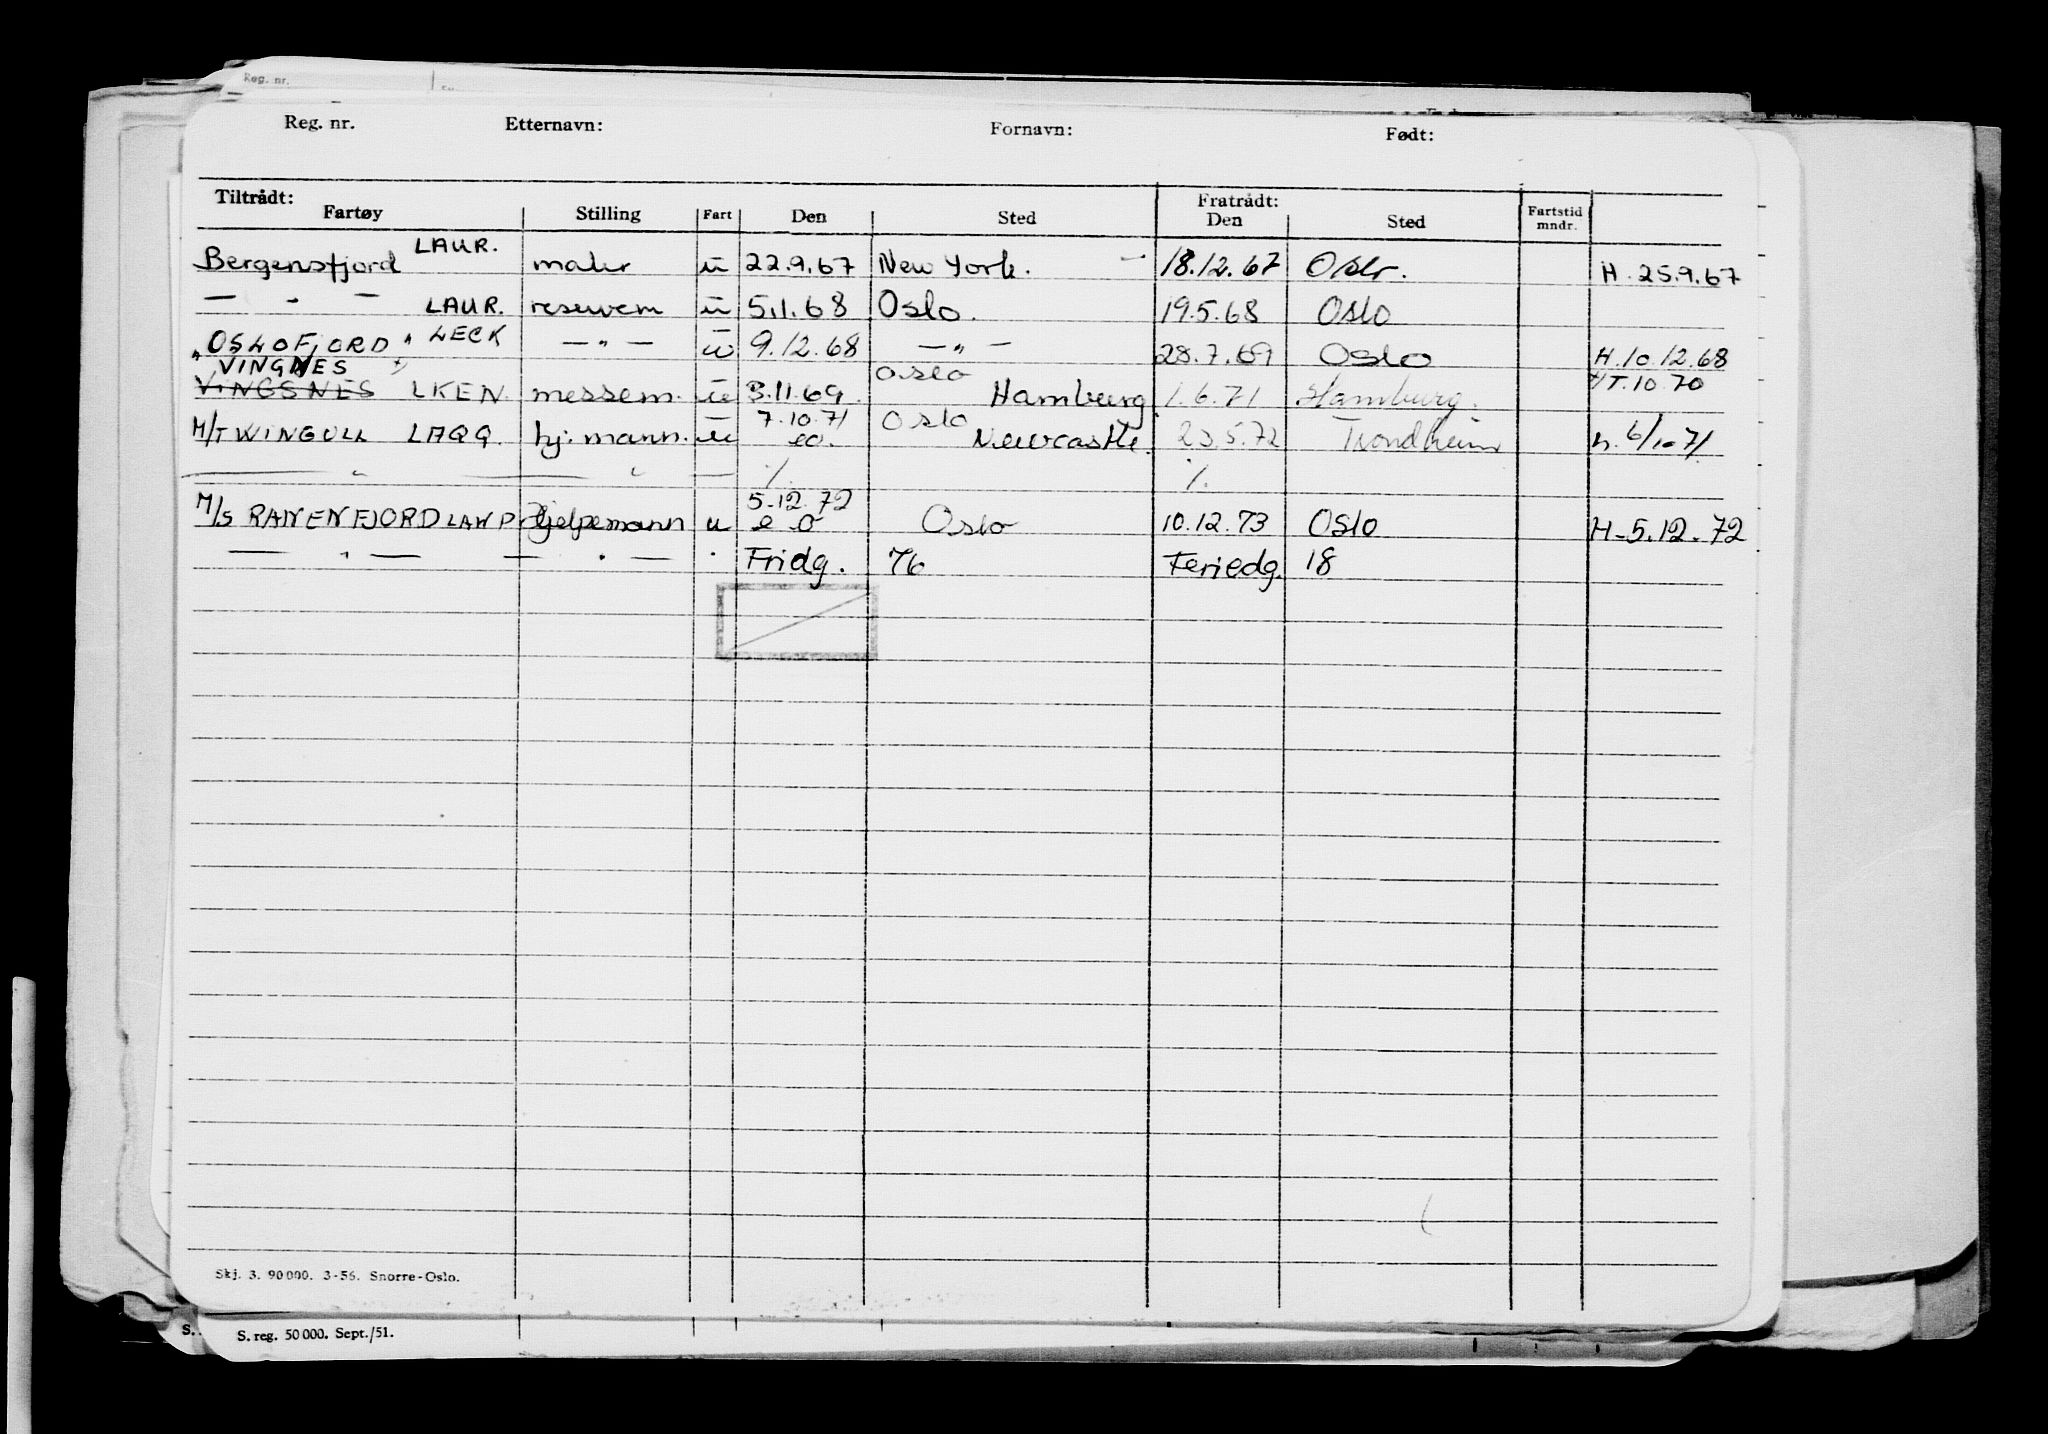 Reg. nr.
Reg. nr. Etternavn: Fornavn: Født:
Tiltrådt: Fratrådt:
Fartøy Stilling Fart Den Sted Den Sted Fartstid mndr.
Bergensfjord LAUR. u 22.9.67 New York. 18.12.67 H. 25.9.67
— " — LAUR. reservem u 5.1.68 Oslo. 19.5.68 Oslo
"OSLOFJORD" LECK — " — u 9.12.68 — " — 28.7.69 Oslo H.10.12.68
VINGNES Oslo T.10.70
VINGSNES LKEN. messem. u 3.11.69. Hamburg 1.6.71 Hamburg.
7.10.71 Oslo
M/T WINGULL LAQQ. hj. mann. u eo. Newcastle. 23.5.72 Trondheim h. 6/10-71
— " — " — ٪ ٪
5.12.72
M/S RANENFJORD Hjelpemann u e o Oslo 10.12.73 Oslo H-5.12.72
— " — — " — " Fridg. 76 Feriedg. 18
Skj. 3. 90 000. 3-56. Snorre-Oslo.
S. reg. 50 000. Sept./51.